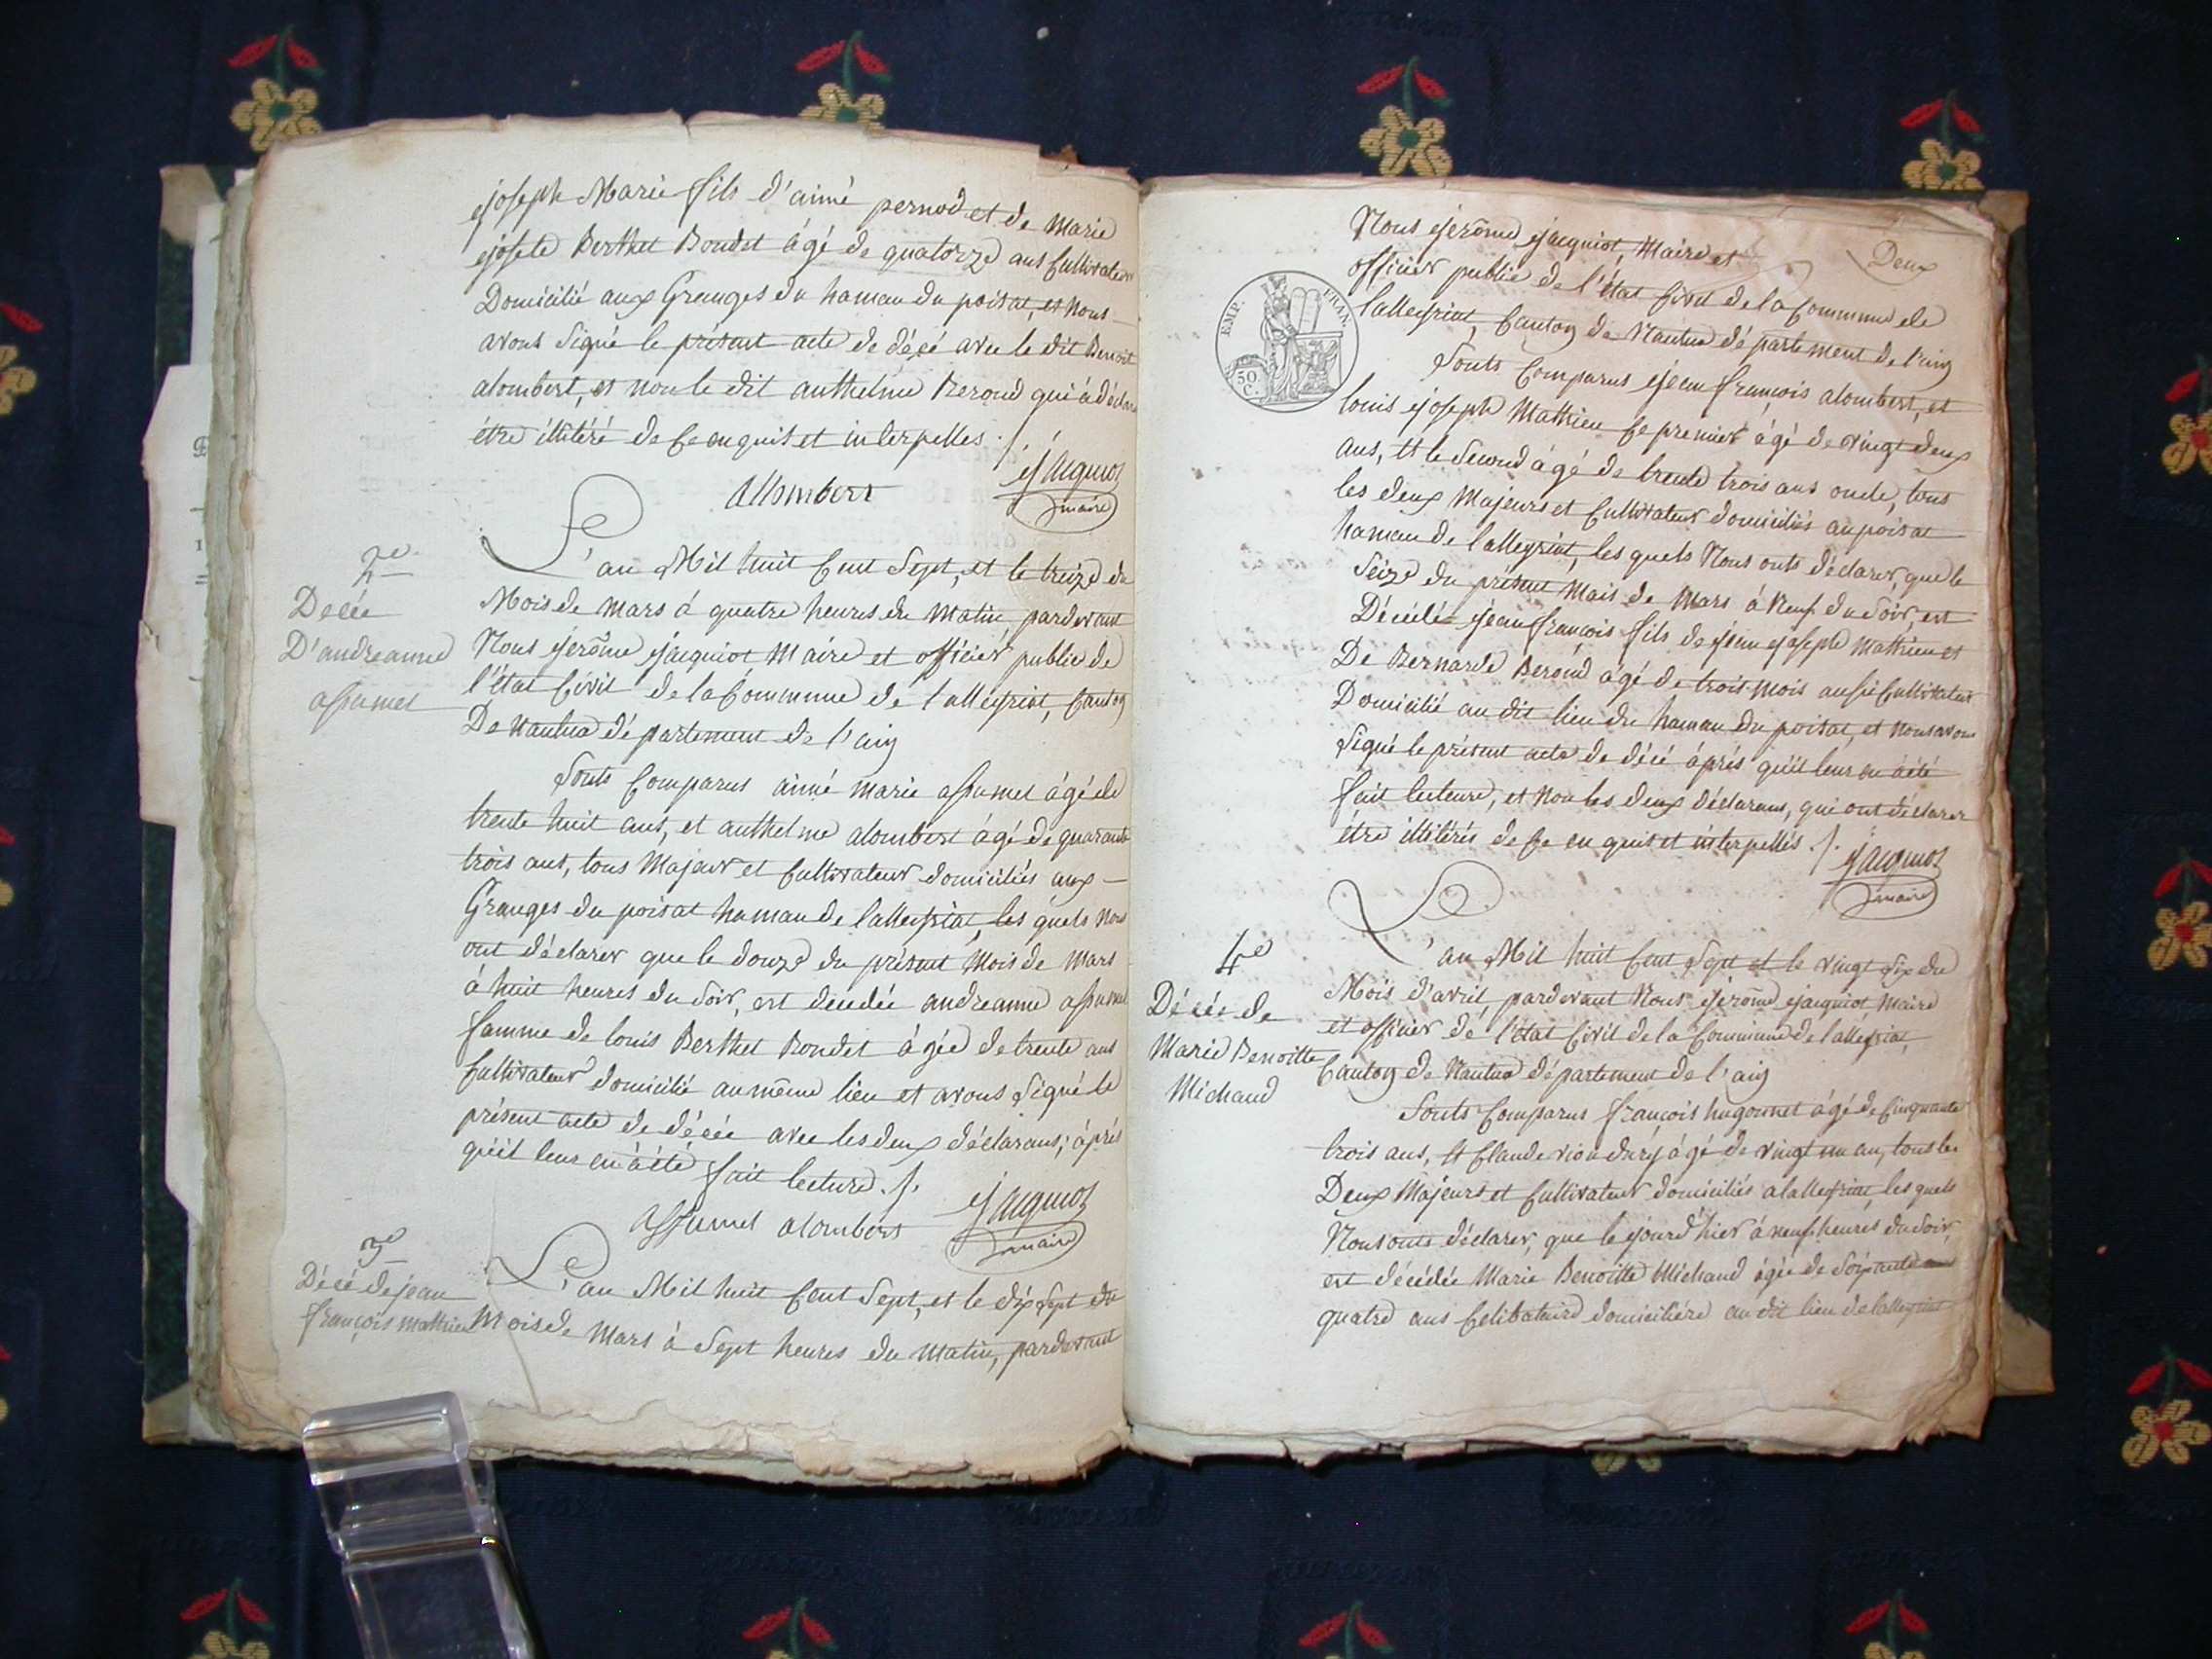 joseph Marie fils d'aimé pernod et de Marie
josete Berthet Bondet âgé de quatorze ans Cultivateur
Domicilié aux Granges du hamau du poisat, et nous
avons Signé le présent acte de décé avec le dit Benoit
alombert, et non le dit anthelme Beroud qui à déclaré
être illitéré de Ce enquis et interpellés ./.
Allombert
Jacquiot
maire
2e
Décée
D'andreanne
assumel
L'an Mil huit Cent Sept, et le treize du
Mois de Mars à quatre heures du Matin, pardevant
Nous Jerôme jacquiot Maire et officier public de
l'état Civil de la Commune de lalleyriat, Canton
De Nantua département de l'ain
Sonts Comparus aimé marie assumel âgé de
trente huit ans, et anthelme alombert âgé de quarante
trois ans, tous Majeur et Cultivateur domiciliés aux
Granges du poisat hamau de lalleyriat, les quels nous
ont déclarer que le douze du présent Mois de Mars
à huit heures du Soir, est décédée andreanne assumel
famme de louis Berthet Bondet âgée de trente ans
Cultivateur domicilié au même lieu et avons Signé le
présent acte de décée avec les deux déclarans, àprés
qu'il leur en à été fait lecture ./.
assumel alombert
Jacquiot
maire
3e
Décé de jean
françois mathieu
L'an Mil huit Cent Sept, et le dix Sept du
Mois de Mars à Sept heures du Matin, pardevant
Deux
Nous jerôme jacquiot, Maire et
officier public de l'état Civil de la Commune de
lalleyriat, Canton de Nantua département de l'ain
EMP. FRAN.
50 C.
Sonts Comparus jean françois alombert, et
louis joseph Mathieu Ce premier âgé de vingt deux
ans, Et le Second âgé de trente trois ans oncle, tous
les deux Majeurs et Cultivateur domiciliés au poisat
hamau de lalleyriat, les quels Nous onts déclarer, que le
Seize du présent Mais de Mars à Neuf du Soir, est
Décédé jean françois fils de jean joseph Mathieu et
De Bernarde Beroud âgé de trois mois aussi Cultivateur
Domicilié au dit lieu du hamau du poisat, et nous avons
Signé le présent acte de décé àprés qu'il leur en à été
fait lecteure, et non les deux déclarans, qui ont déclarer
être illitérés de Ce en quis et interpellés ./.
Jacquiot
maire
4e
Décés de
Marie Benoitte
Michaud
L'an Mil huit Cent Sept et le vingt Six du
Mois d'avril pardevant Nous Jerôme jacquiot, Maire
et officier de l'état Civil de la Commune de lalleyriat,
Canton de Nantua département de l'ain
Sonts Comparus françois hugonnet âgé de Cinquante
trois ans, Et Claude viou dury âgé de vingt un an, tous les
Deux Majeurs et Cultivateur domiciliés a lalleyriat, les quels
Nous onts déclarer, que le jourd'hier à neuf heures du Soir,
est décédée Marie Benoitte Michaud âgée de Soixante
quatre ans Celibataire domiciliére au dit lieu de lalleyriat